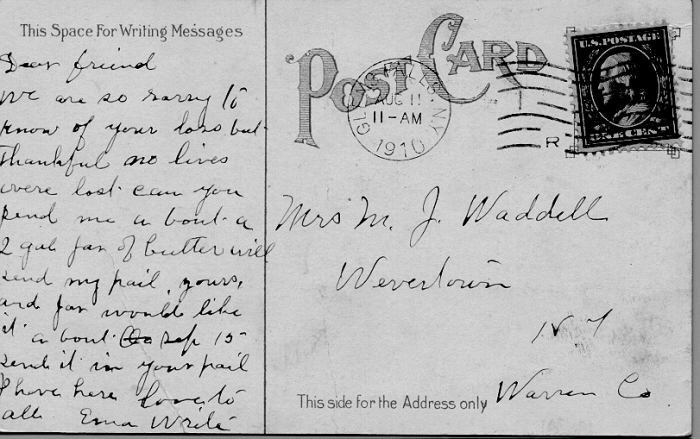 This Space For Writing Messages
Dear friend
We are so sorry to
know of your loss but
thankful no lives
were lost can you
send me a bout a
2 jar of butter will
send my pail, yours,
and jar would like
it a bout sep 15
send it in your pail
I have here love to
all Ema Write
POST CARD
GLENS FALLS, N.Y.
AUG 11
11-AM
1910
R
U.S. POSTAGE
ONE CENT
Mrs M. J. Waddell
Wevertown
N Y
Warren Co
This side for the Address only